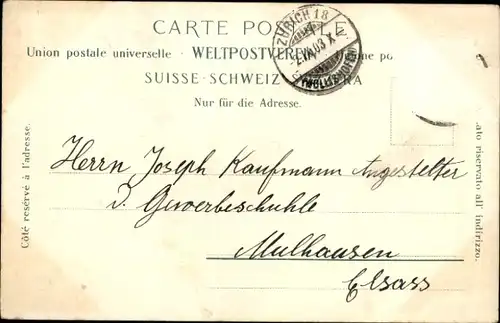 CARTE POSTALE
Union postale universelle - WELTPOSTVEREIN
SUISSE-SCHWEIZ-SVIZZERA
Nur für die Adresse.
ZÜRICH 18
Côté réservé à l'adresse.
lato riservato all' indirizzo.
Herrn Joseph Kaufmann Angestelter
D. Gewerbeschuhle
Mulhausen
Elsass